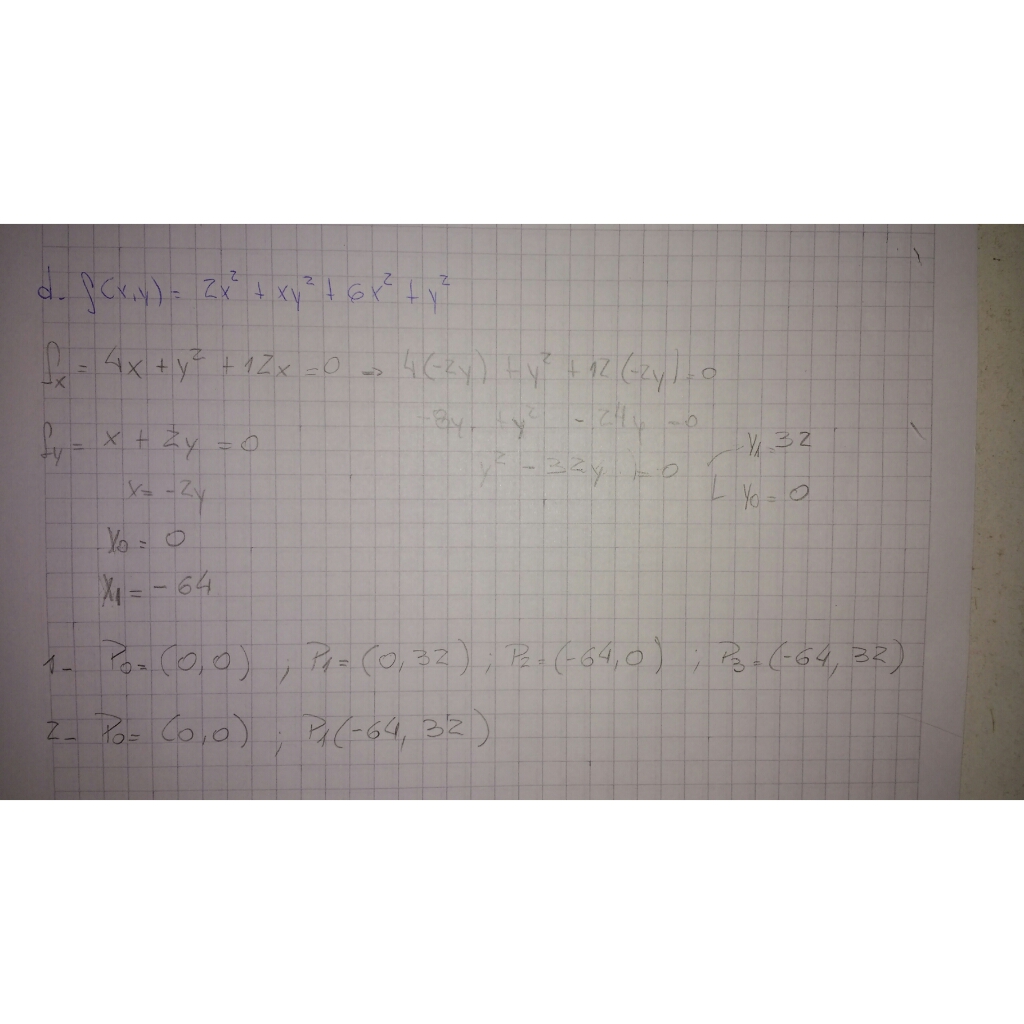 d- f(x,y) = 2x² + xy² + 6x² + y²
fx = 4x + y² + 12x = 0 → 4(-2y) + y² + 12(-2y) = 0
-8y + y² - 24y = 0
fy = x + 2y = 0
y² - 32y = 0
y₁ = 32
y₀ = 0
x = -2y
x₀ = 0
x₁ = -64
1- P₀ = (0,0) ; P₁ = (0,32) ; P₂ = (-64,0) ; P₃ = (-64, 32)
2- P₀ = (0,0) ; P₁(-64, 32)